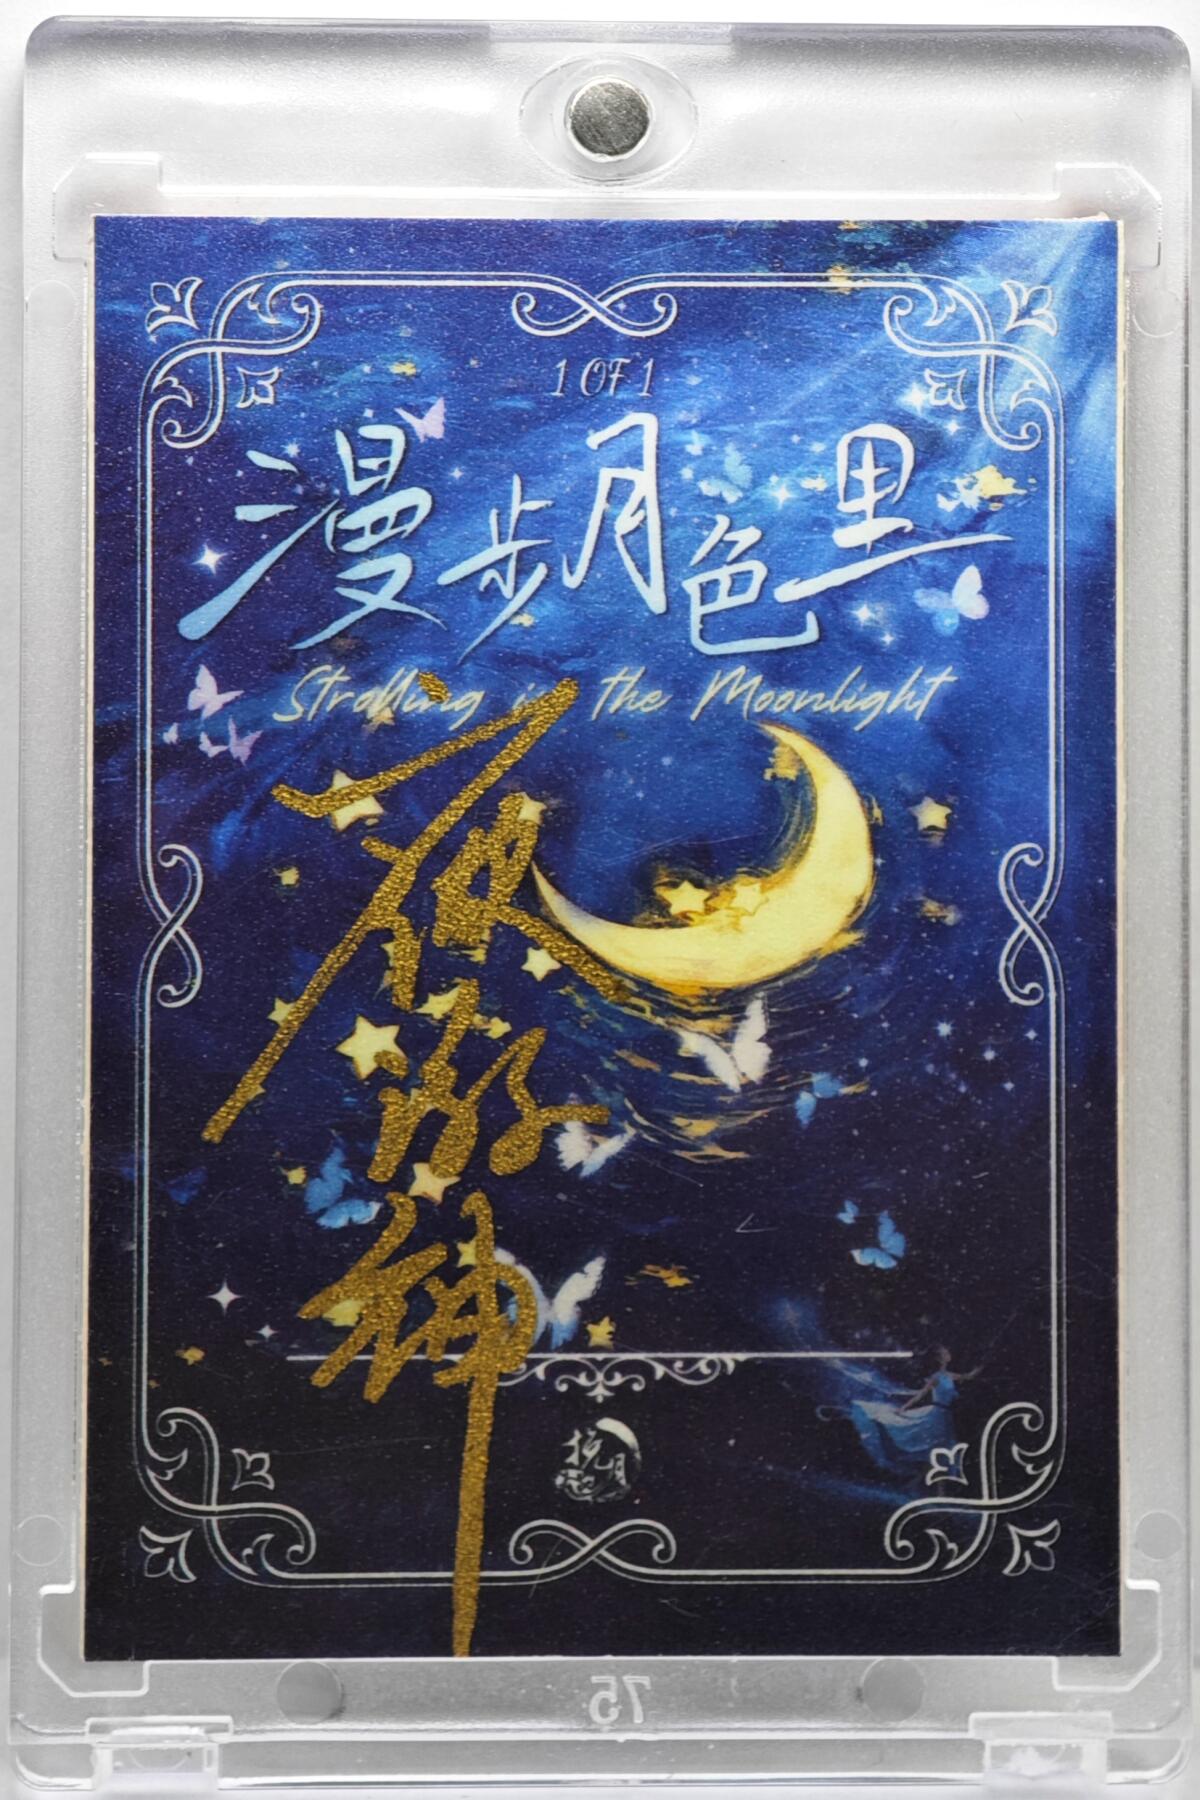 1 OF 1
漫步月色里
Strolling in the Moonlight
夜游神
揽月
75